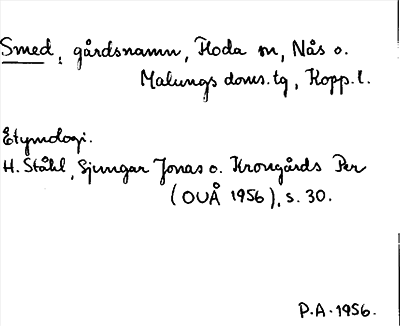 Smed, gårdsnamn, Floda sn, Nås o.
Malungs doms.tg, Kopp.l.
Etymologi.
H. Ståhl, Ljungar Jonas o. Krongårds Per
(OUÅ 1956), s. 30.
P.A. 1956.